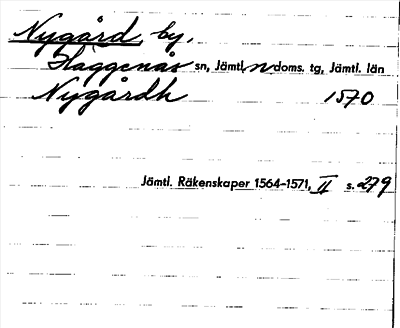 Nygård by,
Häggenås sn, Jämtl. n doms. tg, Jämtl. län
Nygårdh 1570
Jämtl. Räkenskaper 1564-1571, II s. 279